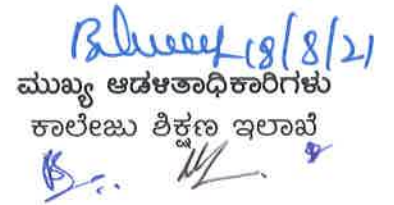 18/8/21
ಮುಖ್ಯ ಆಡಳಿತಾಧಿಕಾರಿಗಳು
ಕಾಲೇಜು ಶಿಕ್ಷಣ ಇಲಾಖೆ